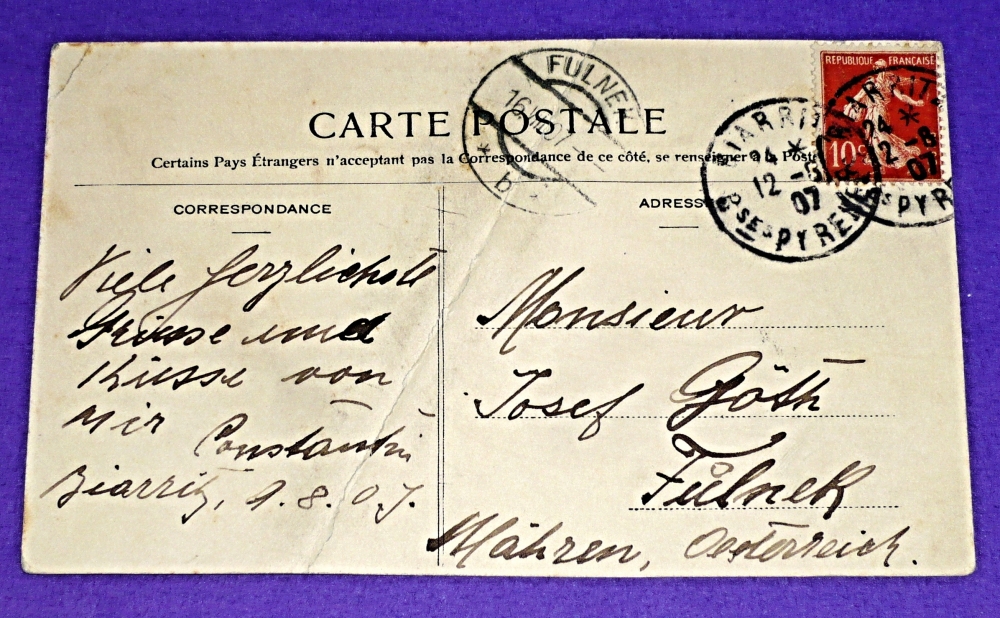 CARTE POSTALE
Certains Pays Étrangers n'acceptant pas la Correspondance de ce côté, se renseigner à la Poste
CORRESPONDANCE
ADRESSE
REPUBLIQUE FRANÇAISE
10
BIARRITZ
24 *
12 -8
07
BSES PYRENEES
BIARRITZ
24 *
12 -8
07
PYR
FULNEK
b
Viele herzlichste
Grüsse und
Küsse von
mir
Constantin
Biarritz, 9.8.07.
Monsieur
Josef Göth
Fulnek
Mähren, Oesterreich.